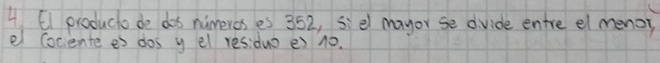 4. El producto de dos números es 352, si el mayor se divide entre el menor,
el cociente es dos y el residuo es 10.